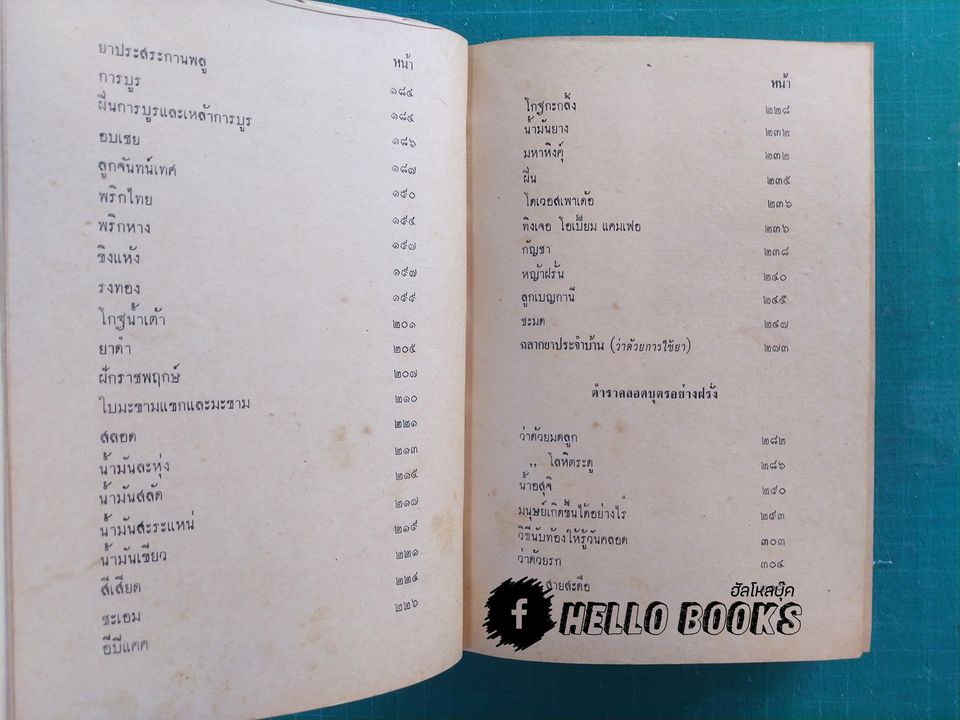 หน้า
ยาประสระกานพลู ๑๘๔
การบูร ๑๘๔
ฝิ่นการบูรและเหล้าการบูร ๑๘๖
อบเชย ๑๘๗
ลูกจันทน์เทศ ๑๙๐
พริกไทย ๑๙๔
พริกหาง ๑๙๗
ขิงแห้ง ๑๙๗
รงทอง ๑๙๙
โกฐน้ำเต้า ๒๐๑
ยาดำ ๒๐๕
ฝักราชพฤกษ์ ๒๐๗
ใบมะขามแขกและมะขาม ๒๑๐
สลอด ๒๒๑
น้ำมันละหุ่ง ๒๑๓
น้ำมันสลัด ๒๑๕
น้ำมันสะระแหน่ ๒๑๗
น้ำมันเขียว ๒๑๙
สีเสียด ๒๒๑
ชะเอม ๒๒๔
อีปีแคค ๒๒๖
หน้า
โกฐกะกลิ้ง ๒๒๘
น้ำมันยาง ๒๓๒
มหาหิงคุ์ ๒๓๒
ฝิ่น ๒๓๕
โดเวอสเพาเด้อ ๒๓๖
ทิงเจอ โอเปียม แคมเฟอ ๒๓๖
กัญชา ๒๓๘
หญ้าฝรั่น ๒๔๐
ลูกเบญกานี ๒๔๕
ชะมด ๒๔๗
ฉลากยาประจำบ้าน (ว่าด้วยการใช้ยา) ๒๗๓
ตำราคลอดบุตรอย่างฝรั่ง
ว่าด้วยมดลูก ๒๘๒
,, โลหิตระดู ๒๘๖
น้ำอสุจิ ๒๙๐
มนุษย์เกิดขึ้นได้อย่างไร ๒๙๓
วิธีนับท้องให้รู้วันคลอด ๓๐๓
ว่าด้วยรก ๓๐๔
สายสะดือ
ฮัลโหลบุ๊ค
f HELLO BOOKS